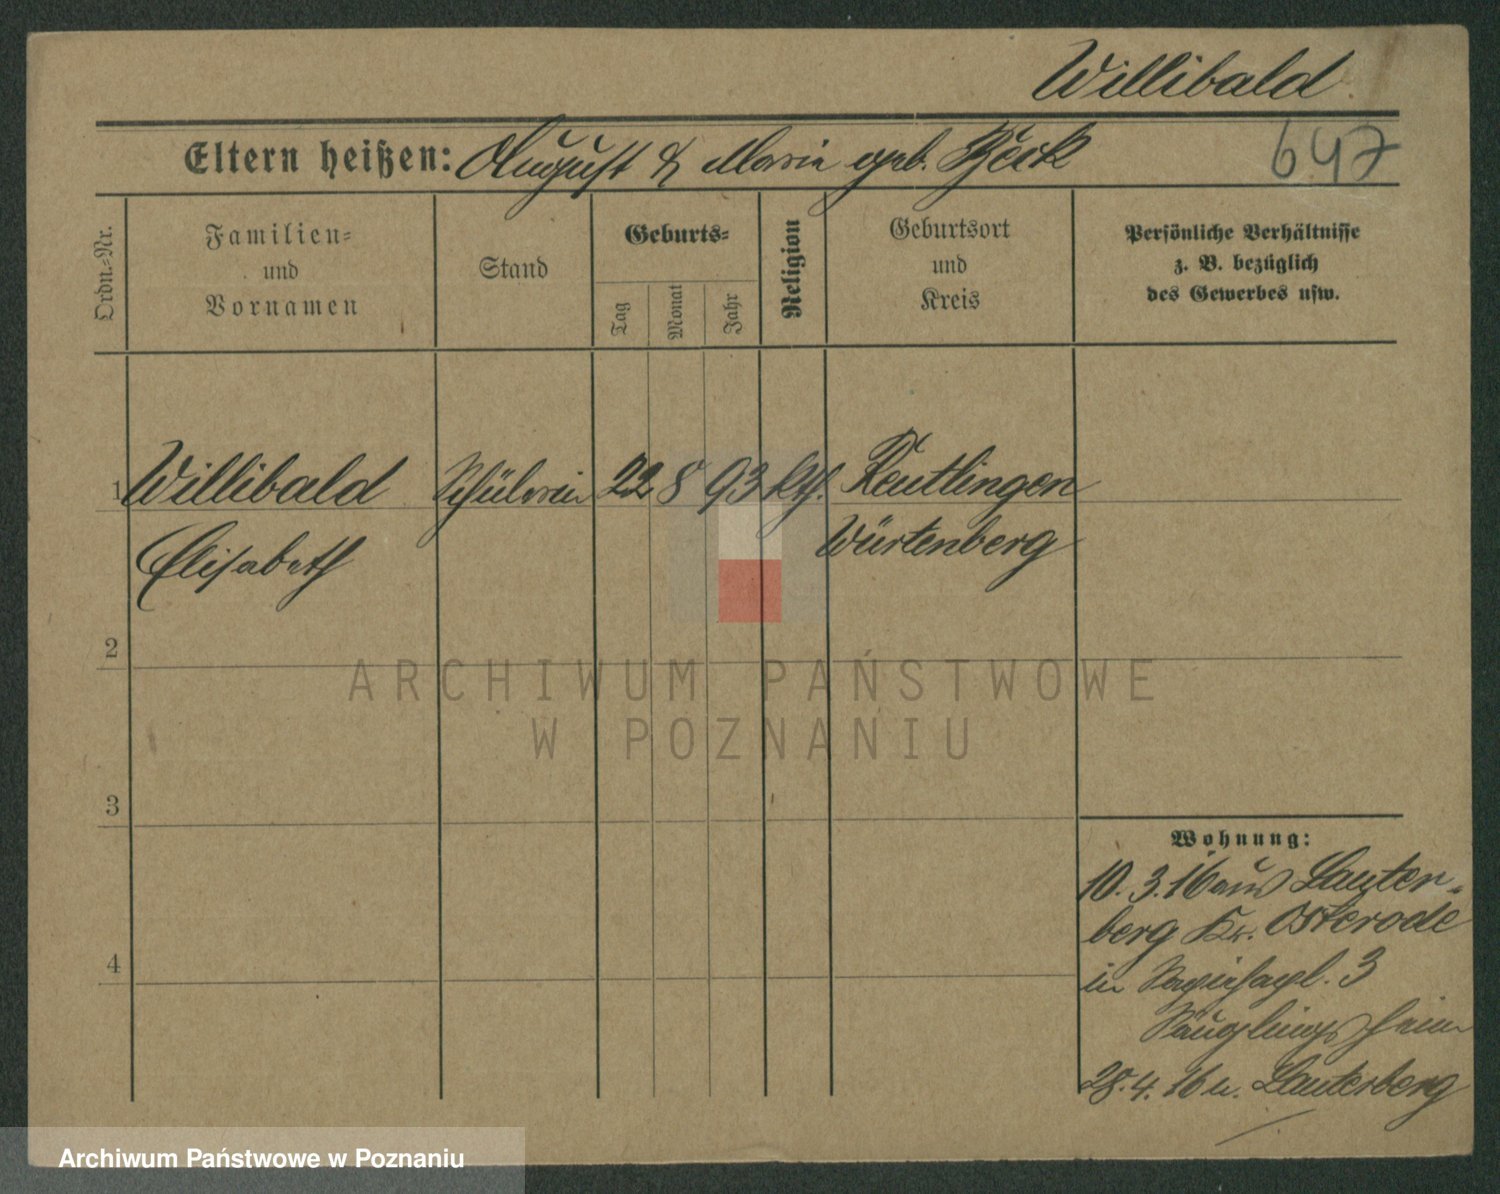 Willibald.
Eltern heißen: August & Maria geb. Beck
647
Ordn.-Nr.
Familien-
und
Vornamen
Stand
Geburts-
Tag
Monat
Jahr
Religion
Geburtsort
und
Kreis
Persönliche Verhältnisse
z. B. bezüglich
des Gewerbes usw.
1 Willibald Schülerin 22 8 93 kth. Reutlingen
Elisabeth Würtenberg
2
3
4
Wohnung:
10.3.16 aus Lauter-
berg Kr. Osterode
in 3
Säuglingsheim
28.4.16 n. Lauterberg
ARCHIWUM PAŃSTWOWE
W POZNANIU
Archiwum Państwowe w Poznaniu